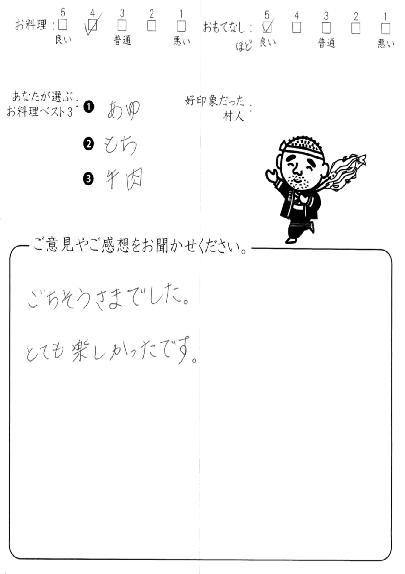 5 4 3 2 1
お料理: □ ☑ □ □ □
良い 普通 悪い
5 4 3 2 1
おもてなし: ☑ □ □ □ □
ほど 良い 普通 悪い
あなたが選ぶ
お料理ベスト3:
❶ あゆ
❷ もち
❸ 牛肉
好印象だった
村人:
ご意見やご感想をお聞かせください。
ごちそうさまでした。
とても楽しかったです。